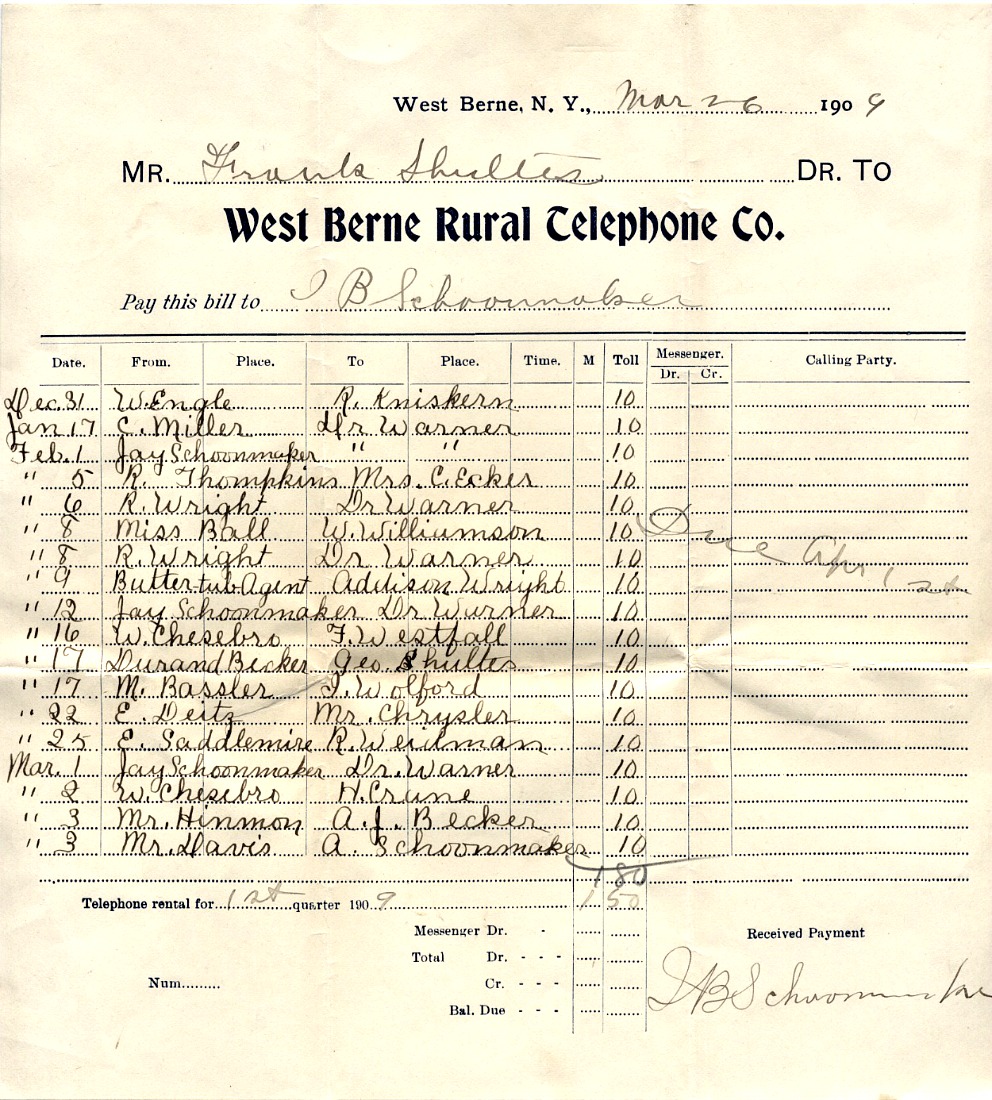 West Berne, N. Y., Mar 26 1909
MR. Frank Shultes DR. TO
West Berne Rural Telephone Co.
Pay this bill to I B Schoonmaker
Date. From. Place. To Place. Time. M Toll Messenger. Dr. Cr. Calling Party.
Dec. 31 W. Engle R. Kniskern 10
Jan 17 C. Miller Dr Warner 10
Feb. 1 Jay Schoonmaker " " 10
" 5 R. Thompkins Mrs. C. Ecker 10
" 6 R. Wright Dr Warner 10
" 8 Miss Ball W. Williamson 10
Due Apr 1st
" 8 R. Wright Dr Warner 10
" 9 Butter tub Agent Addison Wright 10
" 12 Jay Schoonmaker Dr Warner 10
" 16 W. Chesebro F. Westfall 10
" 17 Durand Becker Geo Shultes 10
" 17 M. Bassler I. Wolford 10
" 22 E. Deitz Mr. Chrysler 10
" 25 E. Saddlemire R. Weidman 10
Mar. 1 Jay Schoonmaker Dr. Warner 10
" 2 W. Chesebro H. Crane 10
" 3 Mr. Hinmon A. J. Becker 10
" 3 Mr. Davis A. Schoonmaker 10
1 80
Telephone rental for 1st quarter 1909 1 50
Messenger Dr. -
Received Payment
Total Dr. - - -
Num......... Cr. - - -
I B Schoonmaker
Bal. Due - - -